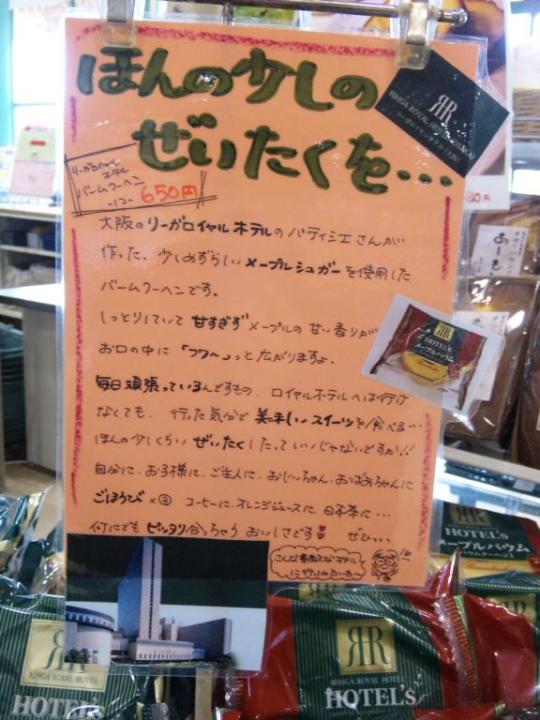 ほんの少しの
ぜいたくを…
リーガロイヤル
ホテル
バームクーヘン
650円
RR
RIHGA ROYAL HOTEL
大阪のリーガロイヤルホテルのパティシエさんが
作った、少しめずらしいメープルシュガーを使用した
バームクーヘンです。
しっとりしていて甘すぎずメープルの甘い香りが
お口の中に「フワ〜」っと広がりますよ。
毎日頑張っているんですもの、ロイヤルホテルへは行け
なくても、行った気分で美味しいスイーツを食べる…
ほんの少しくらいぜいたくしたっていいじゃないですか!!
自分に、お子様に、ご主人に、おじいちゃん、おばあちゃんに
ごほうび コーヒーに、オレンジジュースに、日本茶に…
何にでもピッタリ合っちゃうおいしさです ぜひっっ
RR
HOTEL'S
メープルバウム
こんな素敵なホテル
に行ってみたい
円
HOTEL'S
メープルバウム
RR
RIHGA ROYAL HOTEL
HOTEL'S
RR
RIHGA ROYAL HOTEL
HOTEL'S